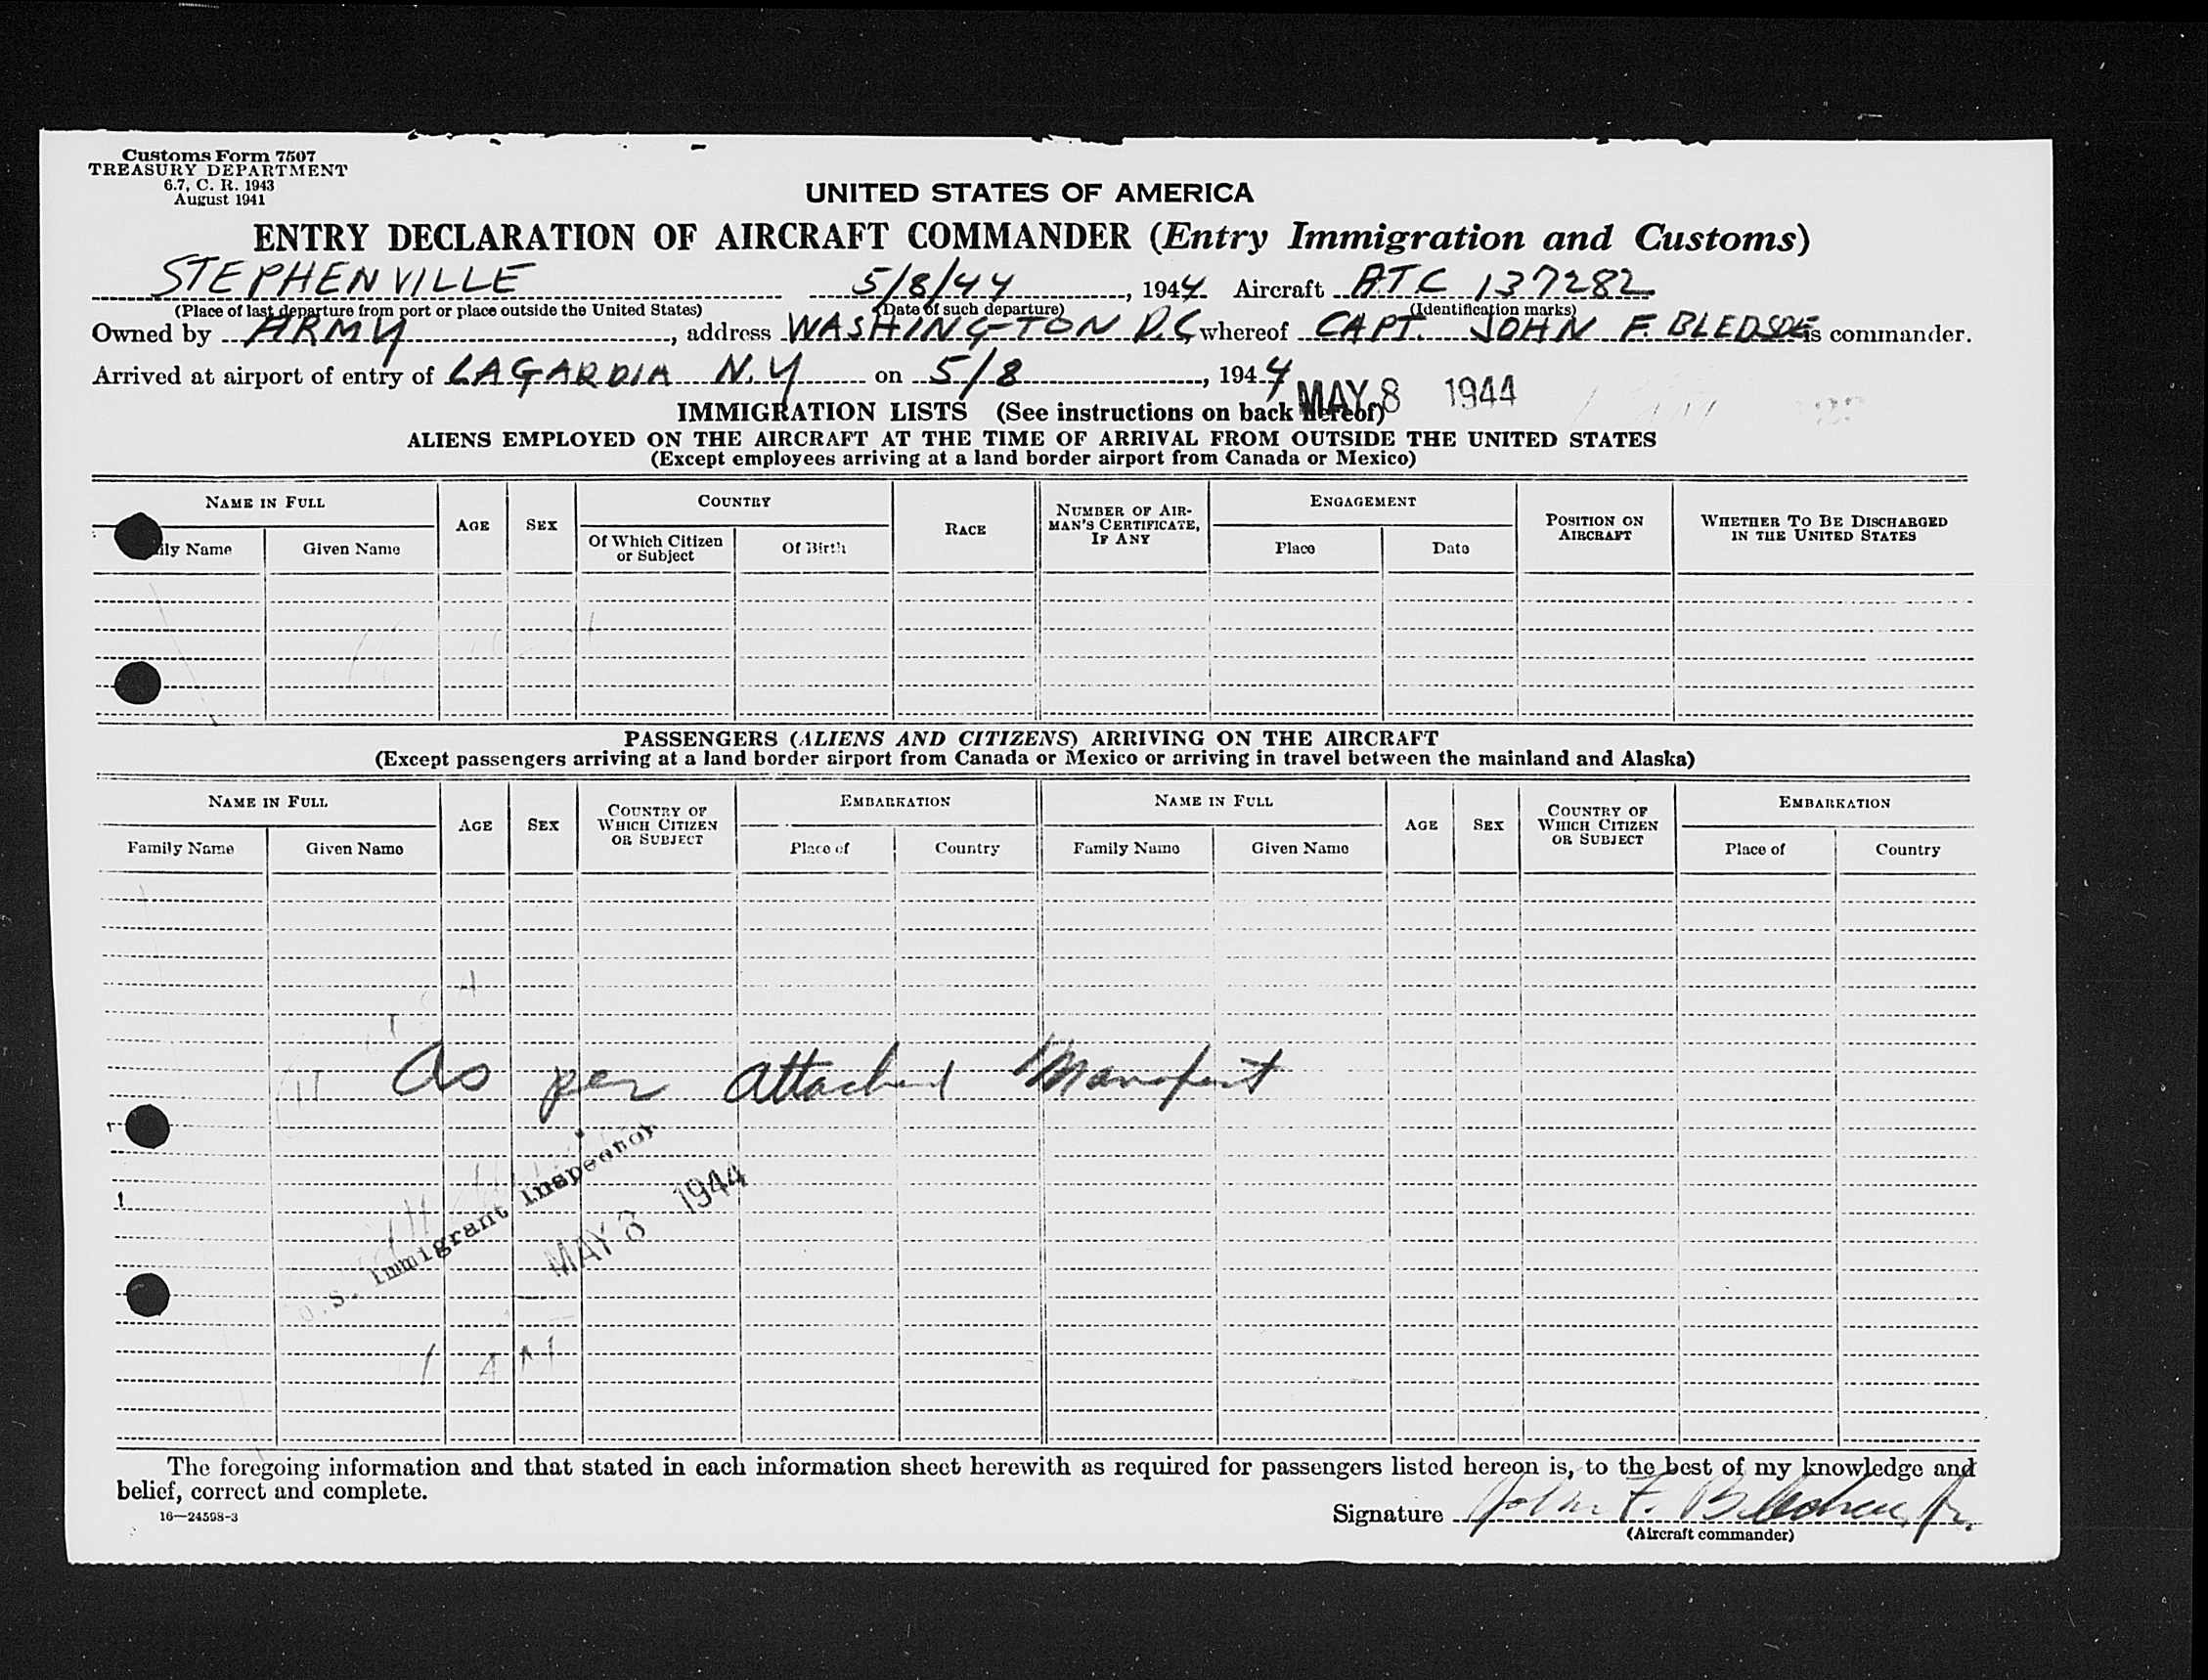 Customs Form 7507
TREASURY DEPARTMENT
6.7, C. R. 1943
August 1941
UNITED STATES OF AMERICA
ENTRY DECLARATION OF AIRCRAFT COMMANDER (Entry Immigration and Customs)
STEPHENVILLE 5/8/44, 1944 Aircraft ATC 137282
(Place of last departure from port or place outside the United States) (Date of such departure) (Identification marks)
Owned by ARMY, address WASHINGTON D.C, whereof CAPT. JOHN F. BLEDSOE is commander.
Arrived at airport of entry of LAGARDIA N.Y on 5/8, 1944
MAY 8 1944
IMMIGRATION LISTS (See instructions on back hereof)
ALIENS EMPLOYED ON THE AIRCRAFT AT THE TIME OF ARRIVAL FROM OUTSIDE THE UNITED STATES
(Except employees arriving at a land border airport from Canada or Mexico)
NAME IN FULL AGE SEX COUNTRY RACE NUMBER OF AIRMAN'S CERTIFICATE, IF ANY ENGAGEMENT POSITION ON AIRCRAFT WHETHER TO BE DISCHARGED IN THE UNITED STATES
ily Name Given Name Of Which Citizen or Subject Of Birth Place Date
PASSENGERS (ALIENS AND CITIZENS) ARRIVING ON THE AIRCRAFT
(Except passengers arriving at a land border airport from Canada or Mexico or arriving in travel between the mainland and Alaska)
NAME IN FULL AGE SEX COUNTRY OF WHICH CITIZEN OR SUBJECT EMBARKATION NAME IN FULL AGE SEX COUNTRY OF WHICH CITIZEN OR SUBJECT EMBARKATION
Family Name Given Name Place of Country Family Name Given Name Place of Country
As per attached Manifest
U.S. Immigrant Inspector
MAY 8 1944
The foregoing information and that stated in each information sheet herewith as required for passengers listed hereon is, to the best of my knowledge and
belief, correct and complete.
16—24598-3
Signature John F. Bledsoe, Jr.
(Aircraft commander)